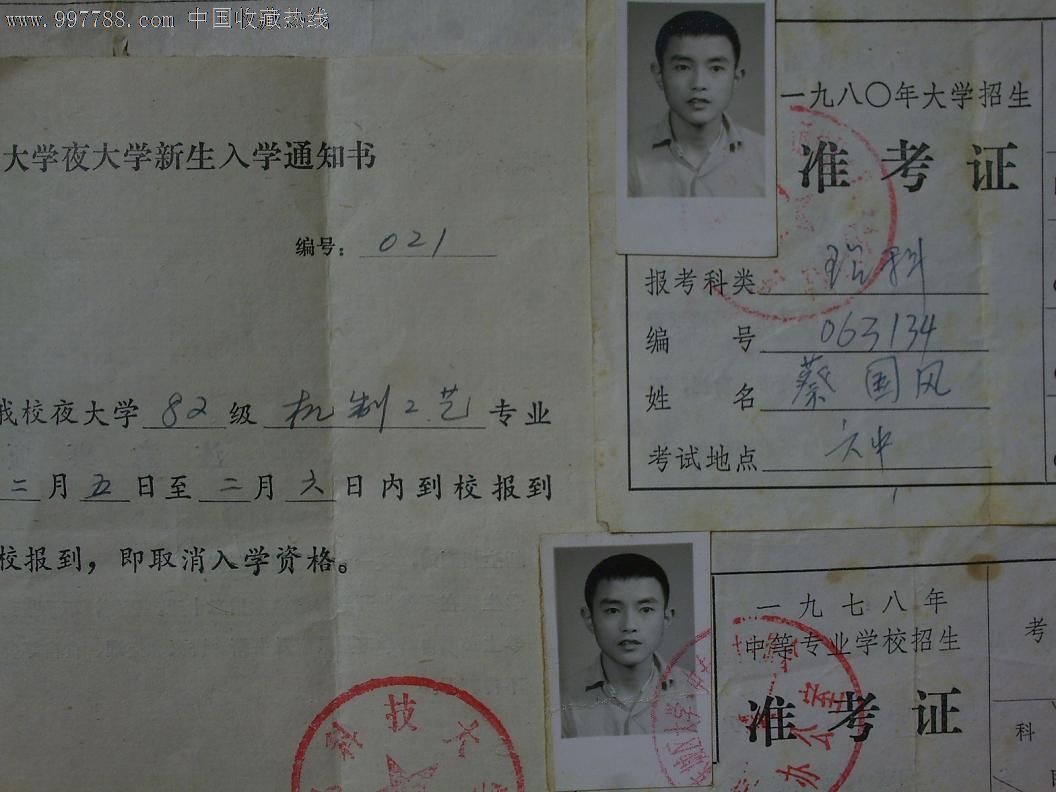 www.997788.com 中国收藏热线
大学夜大学新生入学通知书
编号：021
我校夜大学82级机制工艺专业
二月五日至二月六日内到校报到
校报到，即取消入学资格。
科技大
一九八〇年大学招生
准考证
报考科类 理科
编号 063134
姓名 蔡国风
考试地点 六中
一九七八年
中等专业学校招生
准考证
办公室
考
科